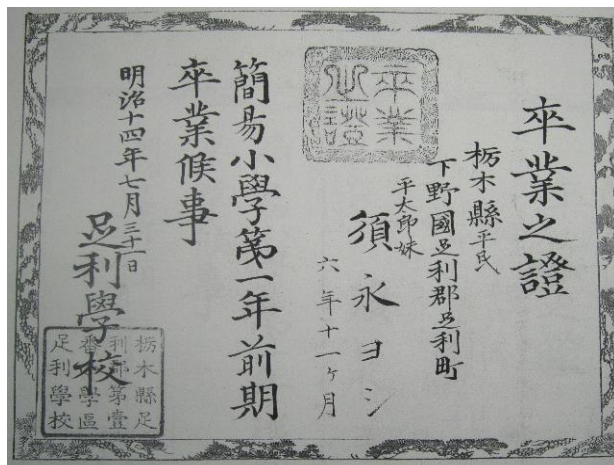 卒業之證
栃木縣平民
下野國足利郡足利町
平太郎妹
須永ヨシ
六年十一ヶ月
卒業
之證
簡易小學第一年前期
卒業候事
明治十四年七月三十一日
足利學校
栃木縣足
利郡第壹
番學區
足利學校